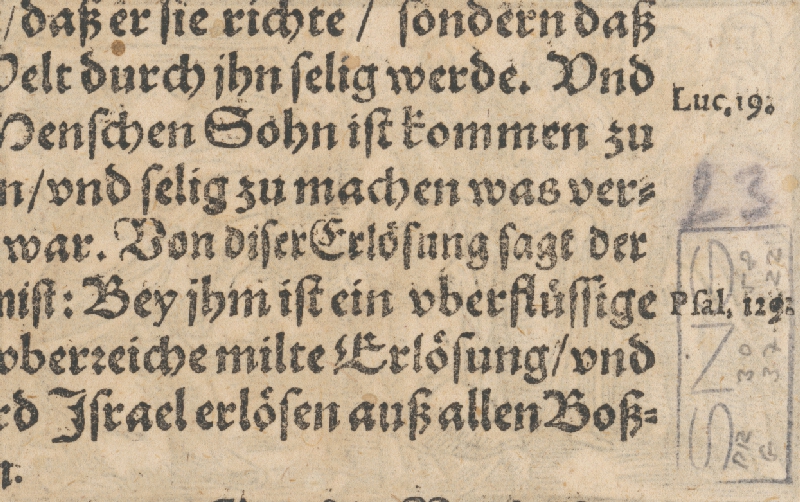 /daß er sie richte / sondern daß
Welt durch jhn selig werde. Vnd
Menschen Sohn ist kommen zu
Luc. 19.
n/vnd selig zu machen was ver-
23
war. Von diser Erlösung sagt der
nist: Bey jhm ist ein vberflüssige
Psal. 129.
vberreiche milte Erlösung/vnd
rd Israel erlösen auß allen Boß-
n.